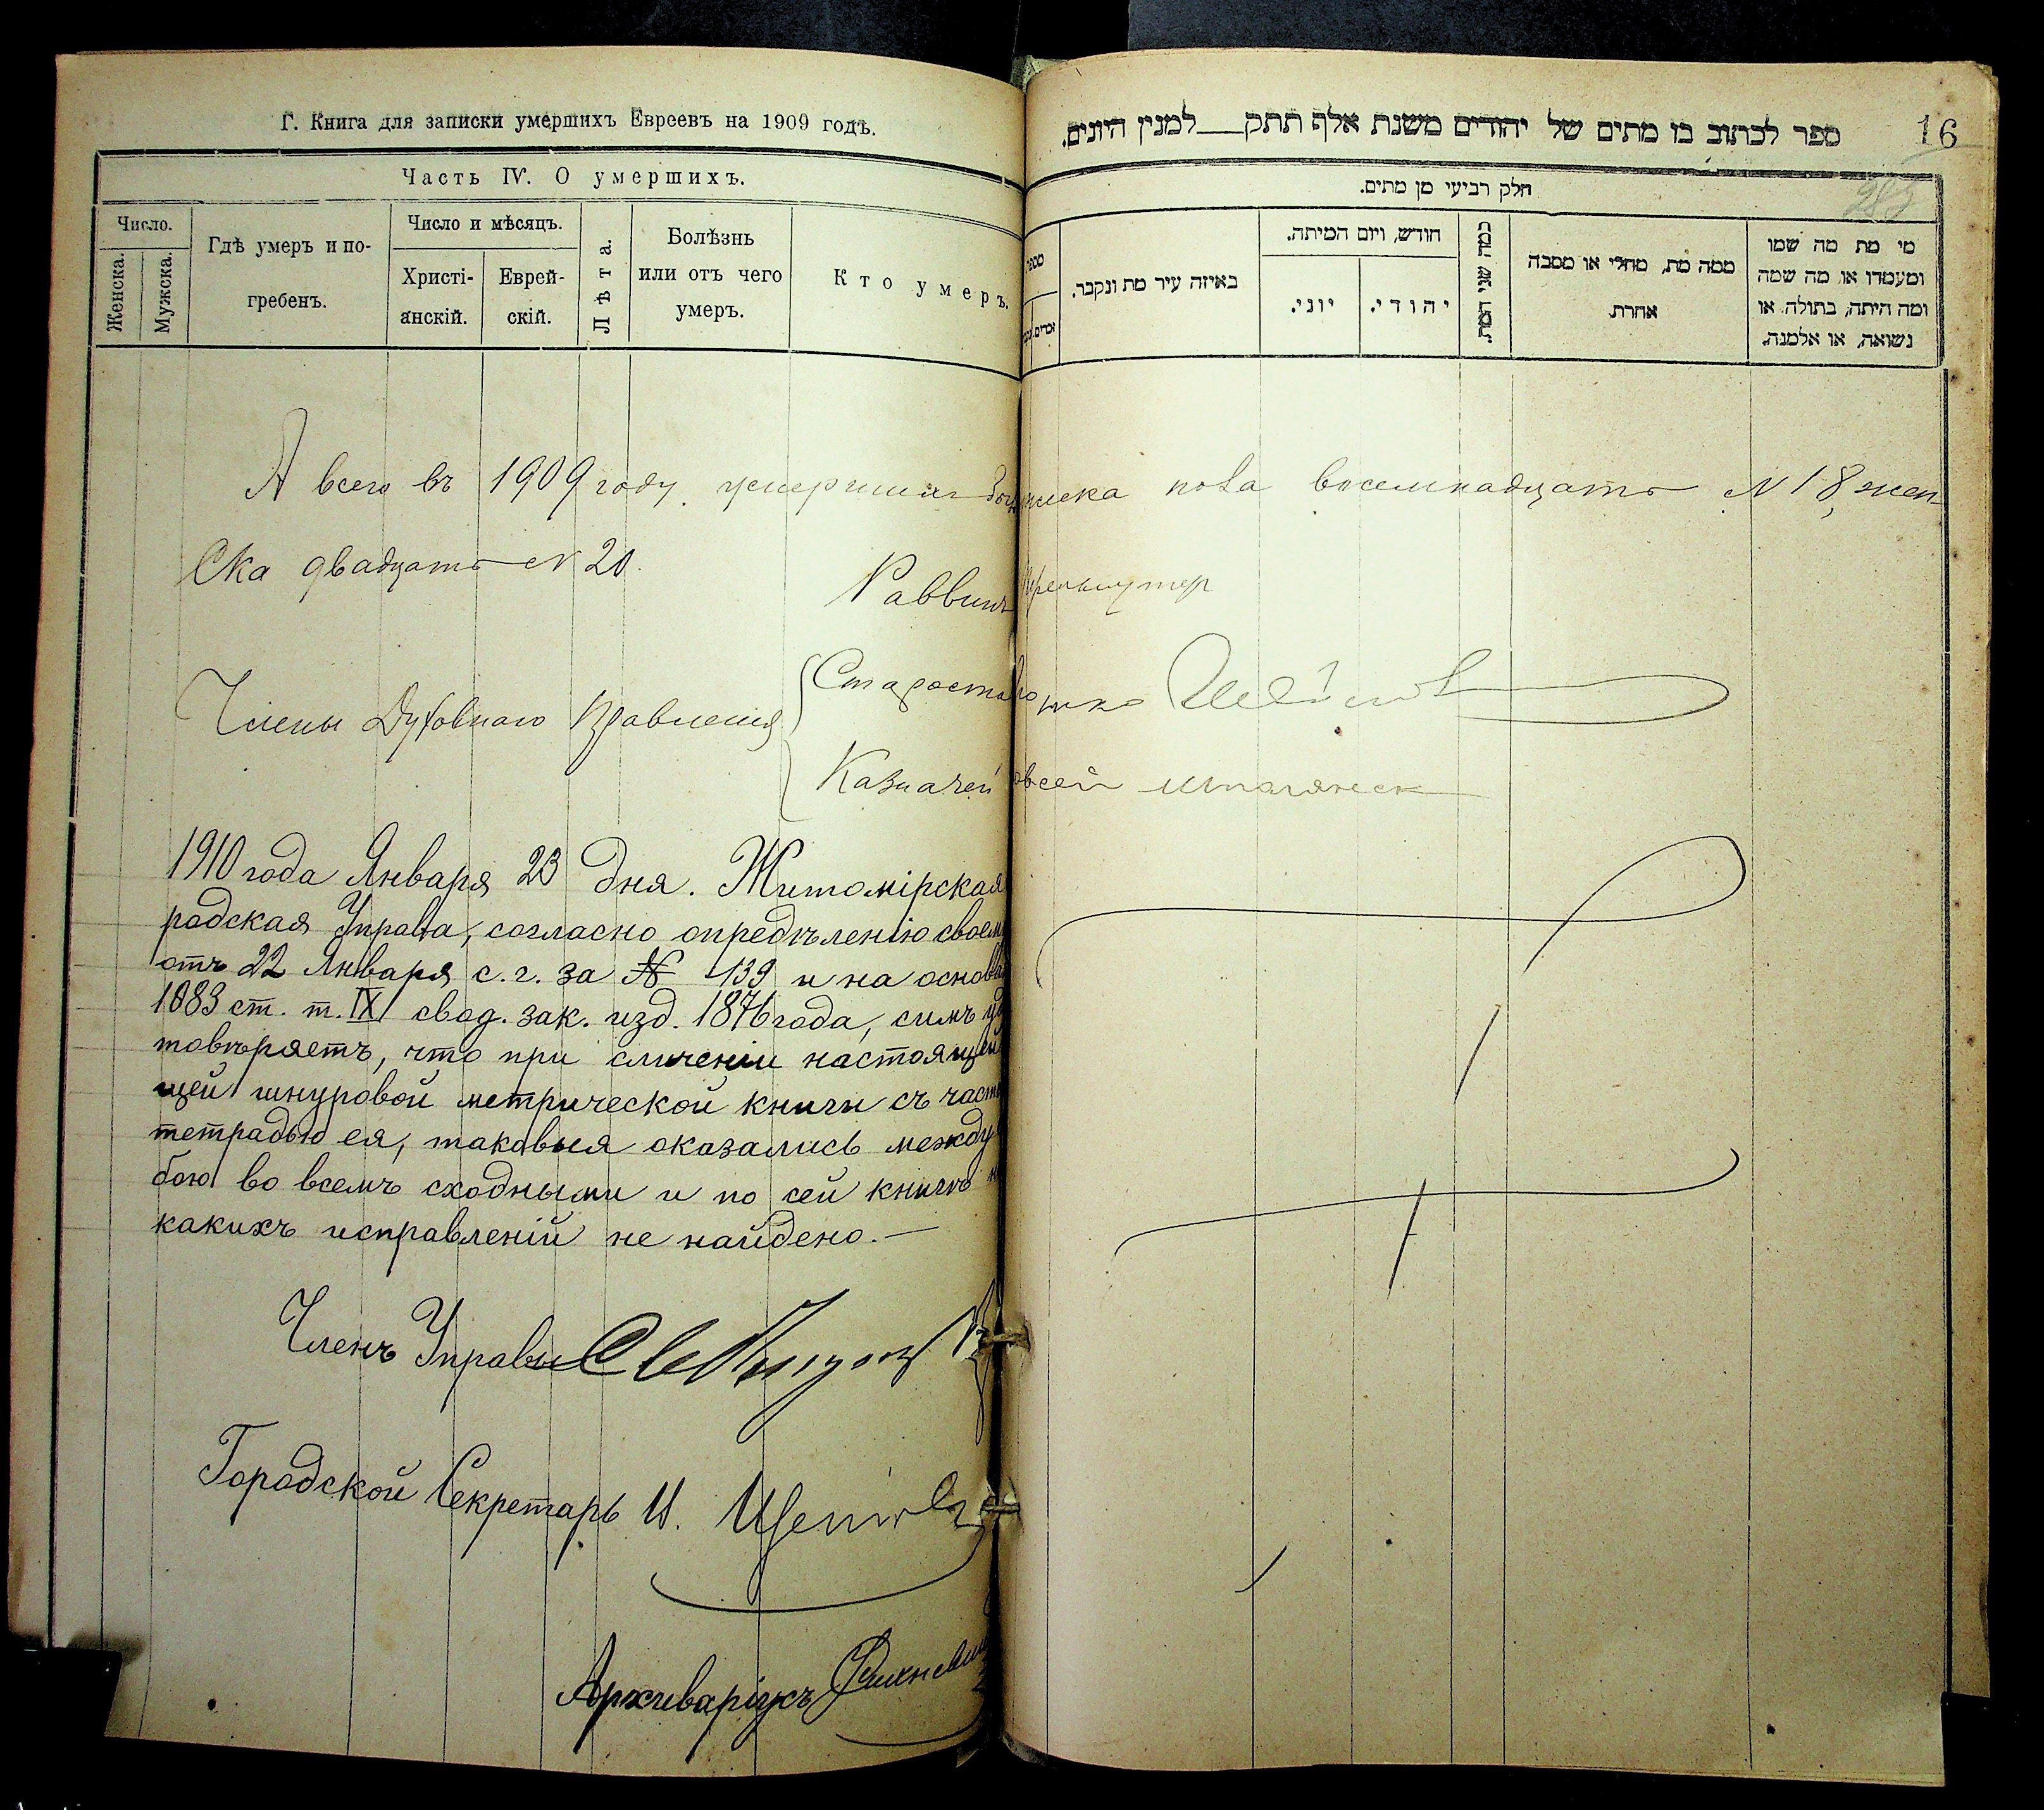 Г. Книга для записки умершихъ Евреевъ на 1909 годъ.
Часть IV. О умершихъ.
Число.
Женска.
Мужска.
Гдѣ умеръ и по-
гребенъ.
Число и мѣсяцъ.
Христі-
анскій.
Еврей-
скій.
Лѣта.
Болѣзнь
или отъ чего
умеръ.
Кто умеръ.
16
ספר לכתוב בו מתים של יהודים משנת אלף תתק__למנין היונים.
חלק רביעי מן מתים.
מספר
זכרים.
באיזה עיר מת ונקבר.
חודש, ויום המיתה.
יוני.
יהודי.
כמה שני המת.
ממה מת, מחלי או מסבה
אחרת.
מי מת מה שמו
ומעמדו או, מה שמה
ומה היתה, בתולה, או
נשואה, או אלמנה.
А всего въ 1909 году умершихъ пола восемнадцать N 18, жен
ска двадцать N 20.
Раввинъ
Члены Духовнаго Правленія
Староста
Казначей
1910 года Января 23 дня. Житомірская
родская Управа, согласно опредѣленію своем
отъ 22 Января с. г. за № 139 и на основа
1083 ст. т. IX свод. зак. изд. 1876 года, симъ удо
товѣряетъ, что при сличеніи настоящей
щей шнуровой метрической книги съ част
тетрадью ея, таковыя оказались между
бою во всемъ сходными и по сей книгѣ н
какихъ исправленій не найдено.—
Членъ Управы
Городской Секретарь И.
Архиваріусъ